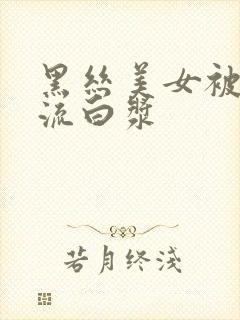 黑丝美女被
流白浆
若月终浅